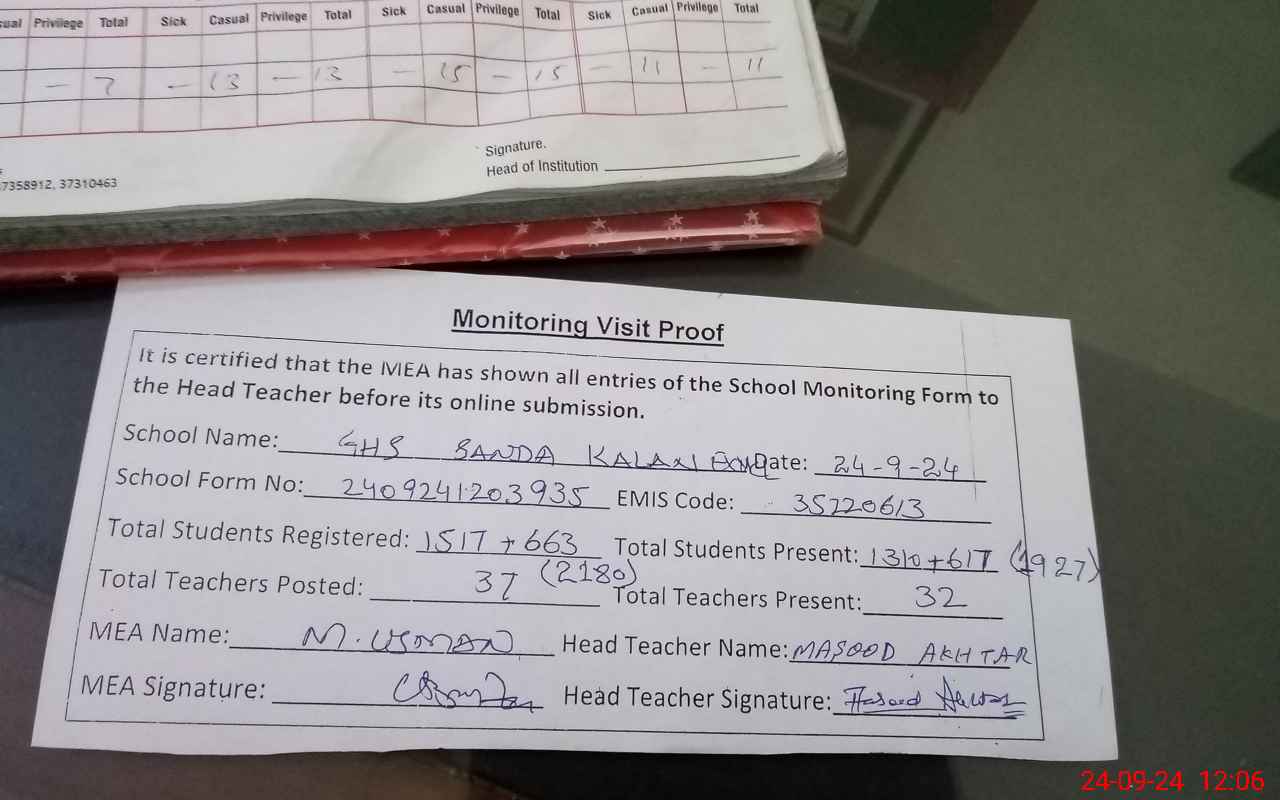 sual Privilege Total Sick Casual Privilege Total Sick Casual Privilege Total Sick Casual Privilege Total
— 7 — 13 — 13 — 15 — 15 — 11 — 11
Signature.
Head of Institution
7358912, 37310463
Monitoring Visit Proof
It is certified that the MEA has shown all entries of the School Monitoring Form to
the Head Teacher before its online submission.
School Name: GHS BANDA KALAN Date: 24-9-24
School Form No: 2409241203935 EMIS Code: 35220613
Total Students Registered: 1517 + 663 (2180) Total Students Present: 1310+617 (1927)
Total Teachers Posted: 37 Total Teachers Present: 32
MEA Name: M. USMAN Head Teacher Name: MASOOD AKHTAR
MEA Signature: Head Teacher Signature: Masood Akhtar
24-09-24 12:06